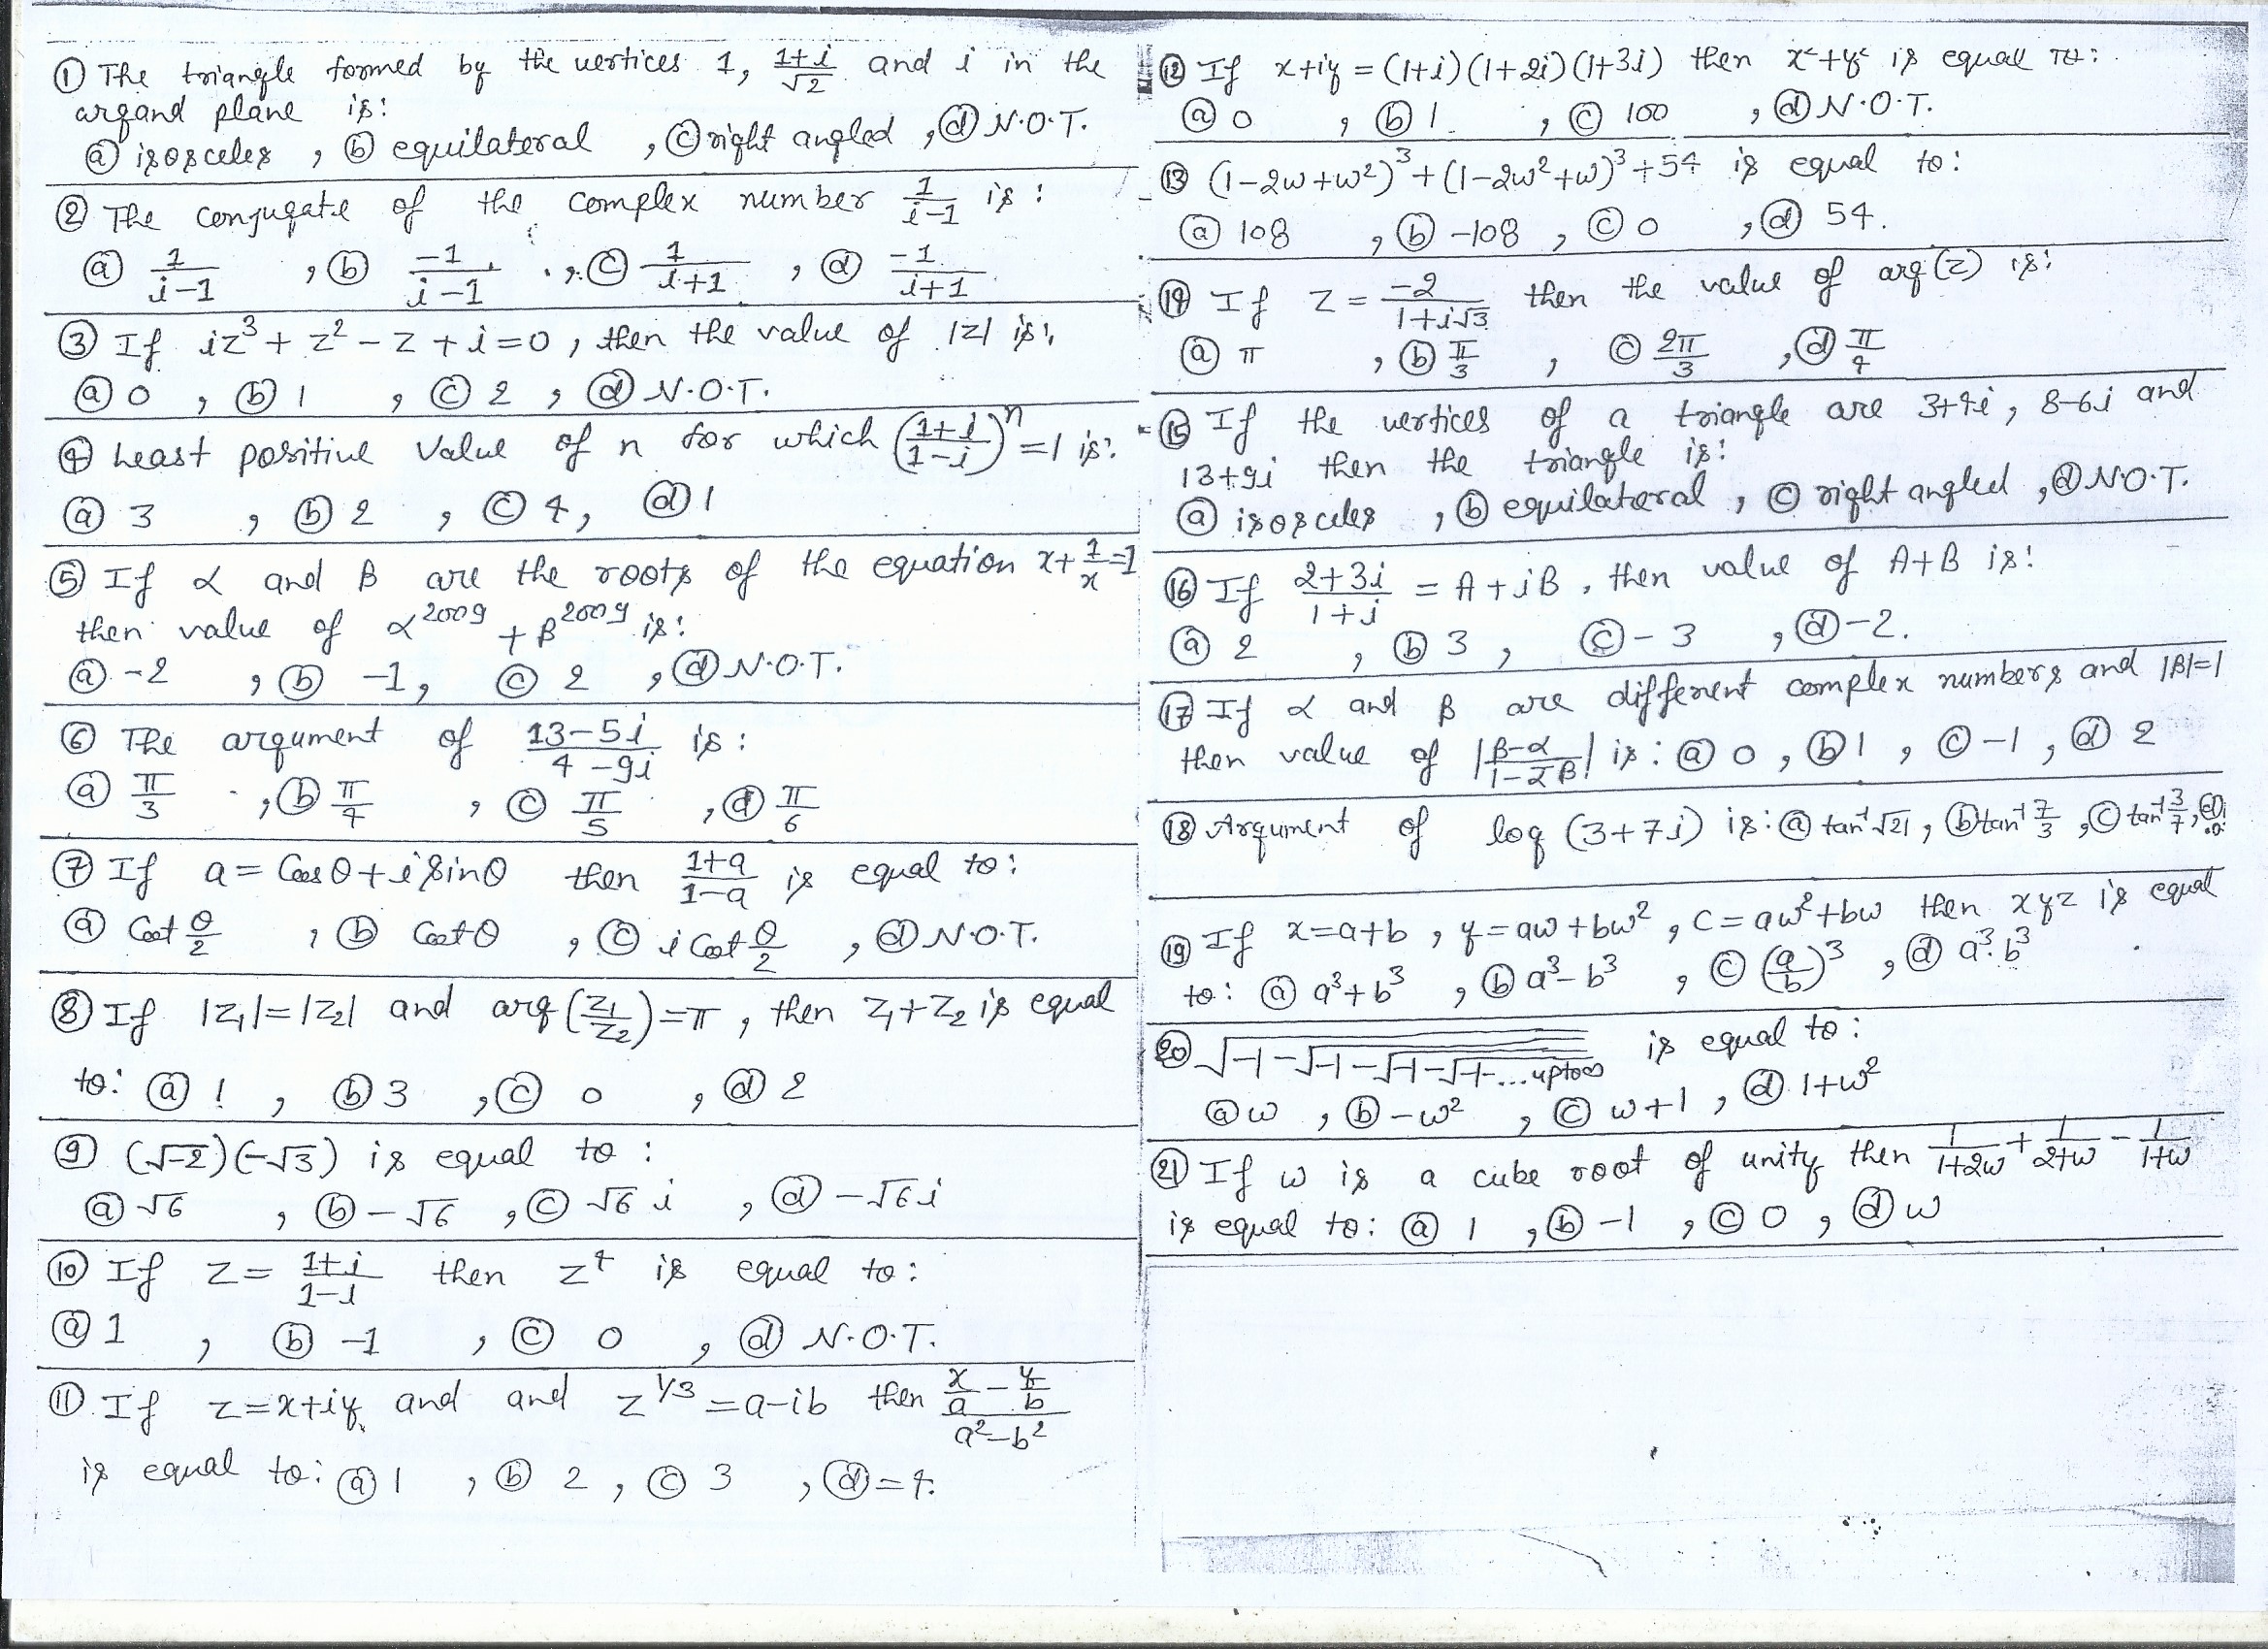 ① The triangle formed by the vertices 1, (1+i)/√2 and i in the
argand plane is:
ⓐ isosceles , ⓑ equilateral , ⓒ right angled , ⓓ N.O.T.
② The conjugate of the complex number 1/(i-1) is :
ⓐ 1/(i-1) , ⓑ -1/(i-1) , ⓒ 1/(i+1) , ⓓ -1/(i+1)
③ If iz³ + z² - z + i = 0 , then the value of |z| is:
ⓐ 0 , ⓑ 1 , ⓒ 2 , ⓓ N.O.T.
④ Least positive value of n for which ((1+i)/(1-i))ⁿ = 1 is:
ⓐ 3 , ⓑ 2 , ⓒ 4 , ⓓ 1
⑤ If α and β are the roots of the equation x + 1/x = 1
then value of α²⁰⁰⁹ + β²⁰⁰⁹ is:
ⓐ -2 , ⓑ -1 , ⓒ 2 , ⓓ N.O.T.
⑥ The argument of (13-5i)/(4-9i) is :
ⓐ π/3 , ⓑ π/4 , ⓒ π/5 , ⓓ π/6
⑦ If a = Cosθ + iSinθ then (1+a)/(1-a) is equal to :
ⓐ Cot θ/2 , ⓑ Cotθ , ⓒ i Cot θ/2 , ⓓ N.O.T.
⑧ If |z₁| = |z₂| and arg(z₁/z₂) = π , then z₁+z₂ is equal
to: ⓐ 1 , ⓑ 3 , ⓒ 0 , ⓓ 2
⑨ (√-2)(-√3) is equal to :
ⓐ √6 , ⓑ -√6 , ⓒ √6 i , ⓓ -√6 i
⑩ If z = (1+i)/(1-i) then z⁴ is equal to :
ⓐ 1 , ⓑ -1 , ⓒ 0 , ⓓ N.O.T.
⑪ If z=x+iy and and z^(1/3) = a-ib then (x/a - y/b)/(a²-b²)
is equal to: ⓐ 1 , ⓑ 2 , ⓒ 3 , ⓓ = 4.
⑫ If x+iy = (1+i)(1+2i)(1+3i) then x²+y² is equal to :
ⓐ 0 , ⓑ 1 , ⓒ 100 , ⓓ N.O.T.
⑬ (1-2ω+ω²)³ + (1-2ω²+ω)³ + 54 is equal to :
ⓐ 108 , ⓑ -108 , ⓒ 0 , ⓓ 54.
⑭ If z = -2/(1+i√3) then the value of arg(z) is:
ⓐ π , ⓑ π/3 , ⓒ 2π/3 , ⓓ π/4
⑮ If the vertices of a triangle are 3+4i , 8-6i and
13+9i then the triangle is:
ⓐ isosceles , ⓑ equilateral , ⓒ right angled , ⓓ N.O.T.
⑯ If (2+3i)/(1+i) = A+iB , then value of A+B is:
ⓐ 2 , ⓑ 3 , ⓒ -3 , ⓓ -2.
⑰ If α and β are different complex numbers and |β|=1
then value of |(β-α)/(1-ᾱβ)| is : ⓐ 0 , ⓑ 1 , ⓒ -1 , ⓓ 2
⑱ Argument of log (3+7i) is: ⓐ tan⁻¹√21 , ⓑ tan⁻¹ 7/3 , ⓒ tan⁻¹ 3/7 , ⓓ
⑲ If x=a+b , y=aω+bω² , C=aω²+bω then xyz is equal
to: ⓐ a³+b³ , ⓑ a³-b³ , ⓒ (a/b)³ , ⓓ a³.b³
⑳ √-1-√-1-√-1-√-1-...upto∞ is equal to :
ⓐ ω , ⓑ -ω² , ⓒ ω+1 , ⓓ 1+ω²
㉑ If ω is a cube root of unity then 1/(1+2ω) + 1/(2+ω) - 1/(1+ω)
is equal to: ⓐ 1 , ⓑ -1 , ⓒ 0 , ⓓ ω